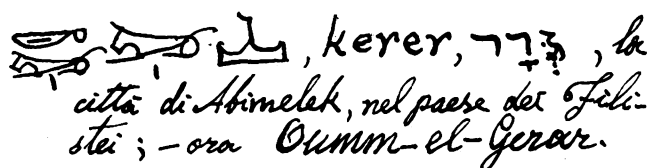 , kerer, גְּרָר, la
città di Abimelek, nel paese dei Fili-
stei; – ora Oumm-el-Gerar.